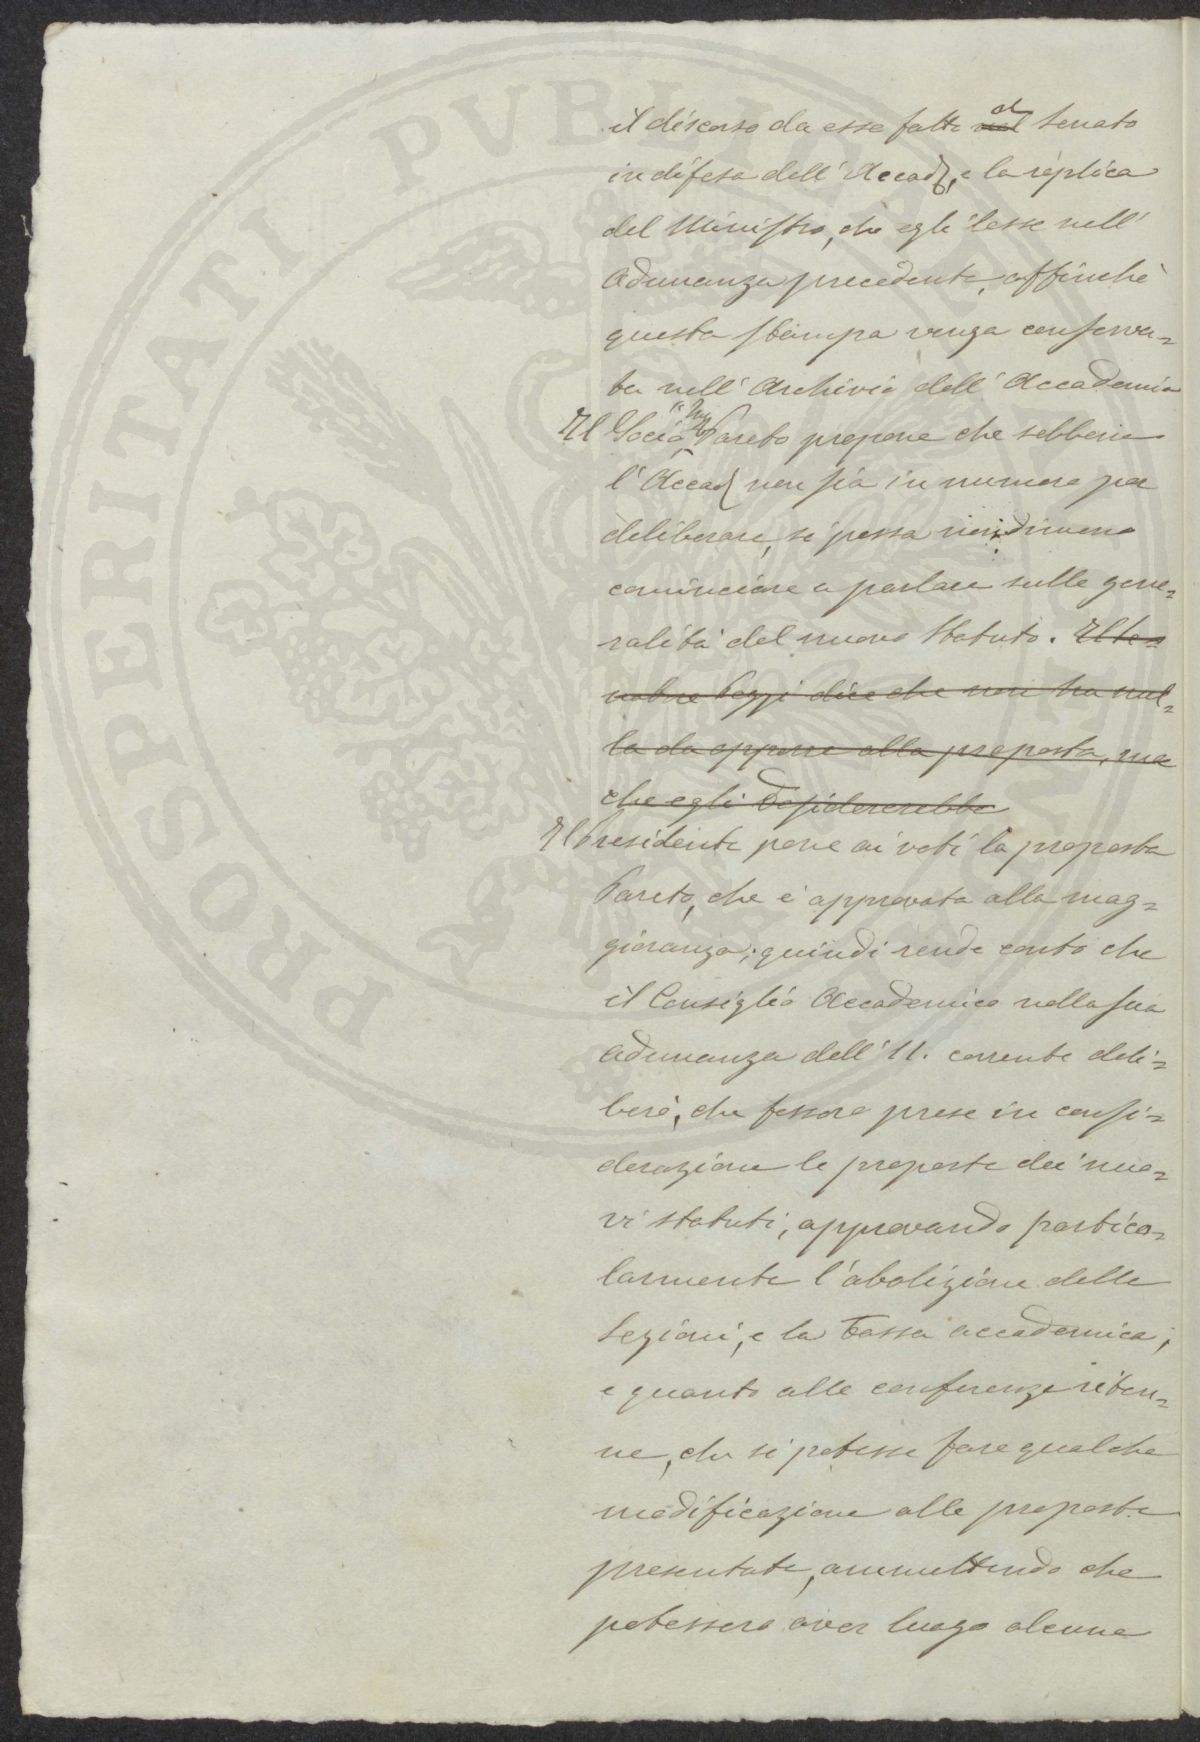 il discorso da esso fatto ~~nel~~ al Senato
in difesa dell'Accad., e la replica
del Ministro, che egli lesse nell'
adunanza precedente, affinchè
questa stampa venga conserva=
ta nell'Archivio dell'Accademia
Il Socio Ing. Pareto propone che sebbene
l'Accad. non sia in numero per
deliberare, si possa nondimeno
cominciare a parlare sulle gene=
ralità del nuovo Statuto. ~~Il Se=~~
~~natore Pozzi dice che non ha nul=~~
~~la da opporre alla proposta, ma~~
~~che egli desidererebbe~~
Il Presidente pone ai voti la proposta
Pareto, che è approvata alla mag=
gioranza; quindi rende conto che
il Consiglio Accademico nella sua
adunanza dell'11. corrente deli=
berò, che fossero prese in consi=
derazione le proposte dei nuo=
vi statuti, approvando partico=
larmente l'abolizione delle
Sezioni, e la Tassa accademica;
e quanto alle conferenze riten=
ne, che si potesse fare qualche
modificazione alle proposte
presentate, ammettendo che
potessero aver luogo alcune
PROSPERITATI PVBLICAE